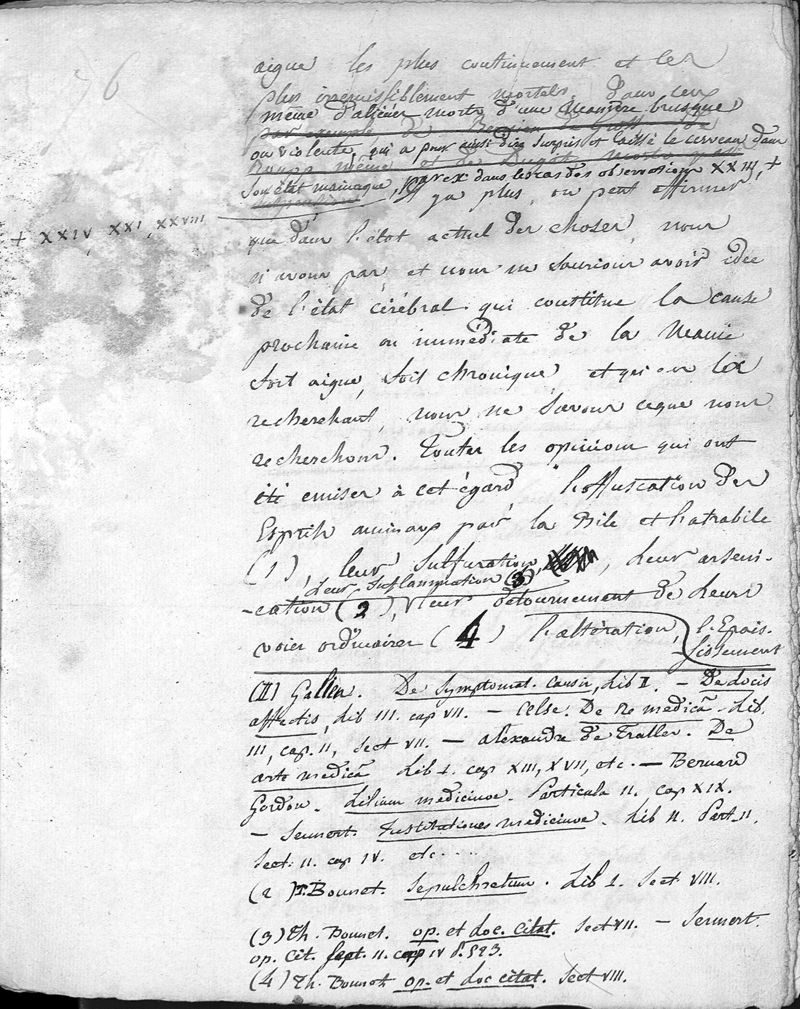 76
aigue les plus continuement et les
plus irremissiblement mortels, dans ceux
même d'aliénés morts d'une manière brusque
par exemple de
ou violente, qui a pour ainsi dire surpris et laissé le cerveau dans
même et de
son état maniaque, par ex dans les cas des observations XXIII, +
+ XXIV, XXI, XXVIII
y a plus, on peut affirmer
que dans l'état actuel des choses, nous
n'avons pas, et nous ne saurions avoir idée
de l'état cérébral qui constitue la cause
prochaine ou immédiate de la Manie
soit aigue, soit chronique, et qu'en la
recherchant, nous ne savons ce que nous
recherchons. Toutes les opinions qui ont
été emises à cet égard l'offuscation des
Esprits animaux par la Bile et l'atrabile
(1), leur sulfuration, leur arseni-
leur inflammation (3)
-cation (2), leur détournement de leurs
voies ordinaires (4) l'altération, l'Epais-
sissement
(1) Galien. De Symptomat. causis, Lib II. - De locis
affectis, Lib III. cap VII. - Celse. De Re medicâ. Lib.
III, cap. II, sect VII. - alexandre de Traller. De
arte medicâ Lib I. cap XIII, XVII, etc. - Bernard
Gordon. Lilium medicinæ. Particula II. cap XIX.
- Sennert. Institutiones medicinæ. Lib II. Part. II.
Sect. II. cap IV. etc.....
(2) T. Bonnet. Sepulchretum. Lib I. Sect VIII.
(3) Th. Bonnet. op. et loc. citat. Sect VII. - Sennert.
op. cit. sect. II. cap IV p. 393.
(4) Th. Bonnet op. et loc citat. Sect VIII.